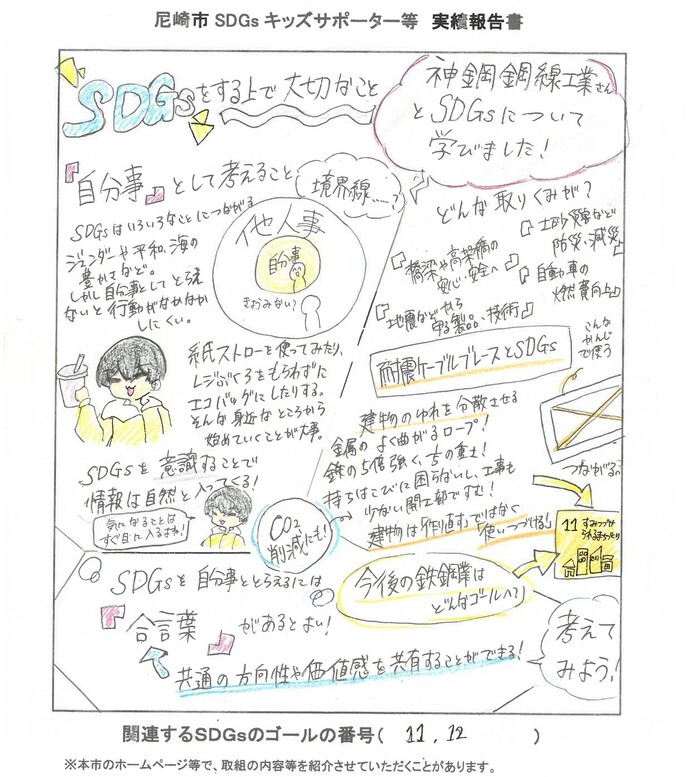 尼崎市 SDGs キッズサポーター等 実績報告書
SDGsをする上で大切なこと
神鋼鋼線工業さん
とSDGsについて
学びました!
『自分事』として考えること
境界線……?
SDGsはいろいろなことにつながる
ジェンダーや平和、海の
豊かさなど。
しかし自分事としてとらえ
ないと行動がなかなか
しにくい。
他人事
自分事
きおみない?
どんな取りくみが?
『土砂災害など
防災、減災』
『橋梁や高架橋の
安心・安全へ』
『自動車の
燃費向上』
『地震などから
守る製品、技術』
紙ストローを使ってみたり、
レジぶくろをもらわずに
エコバッグにしたりする。
そんな身近なところから
始めていくことが大事。
耐震ケーブルブレースとSDGs
こんな
かんじ
で使う
建物のゆれを分散させる
金属のよく曲がるロープ!
鉄の5倍強く、1/5の重さ!
持ちはこびに困らないし、工事も
少ない間工部ですむ!
建物は「作り直す」ではなく
「使いつづける」
つながるへ
SDGsを意識することで
情報は自然と入ってくる!
気になることは
すぐ目に入るよね!
CO2
削減にも!
11 すみつづけ
られるまちづくり
SDGsを自分事ととらえるには
『合言葉』があるとよい!
共通の方向性や価値感を共有することができる!
今後の鉄鋼業は
どんなゴールへ?
考えて
みよう!
関連するSDGsのゴールの番号( 11, 12 )
※本市のホームページ等で、取組の内容等を紹介させていただくことがあります。